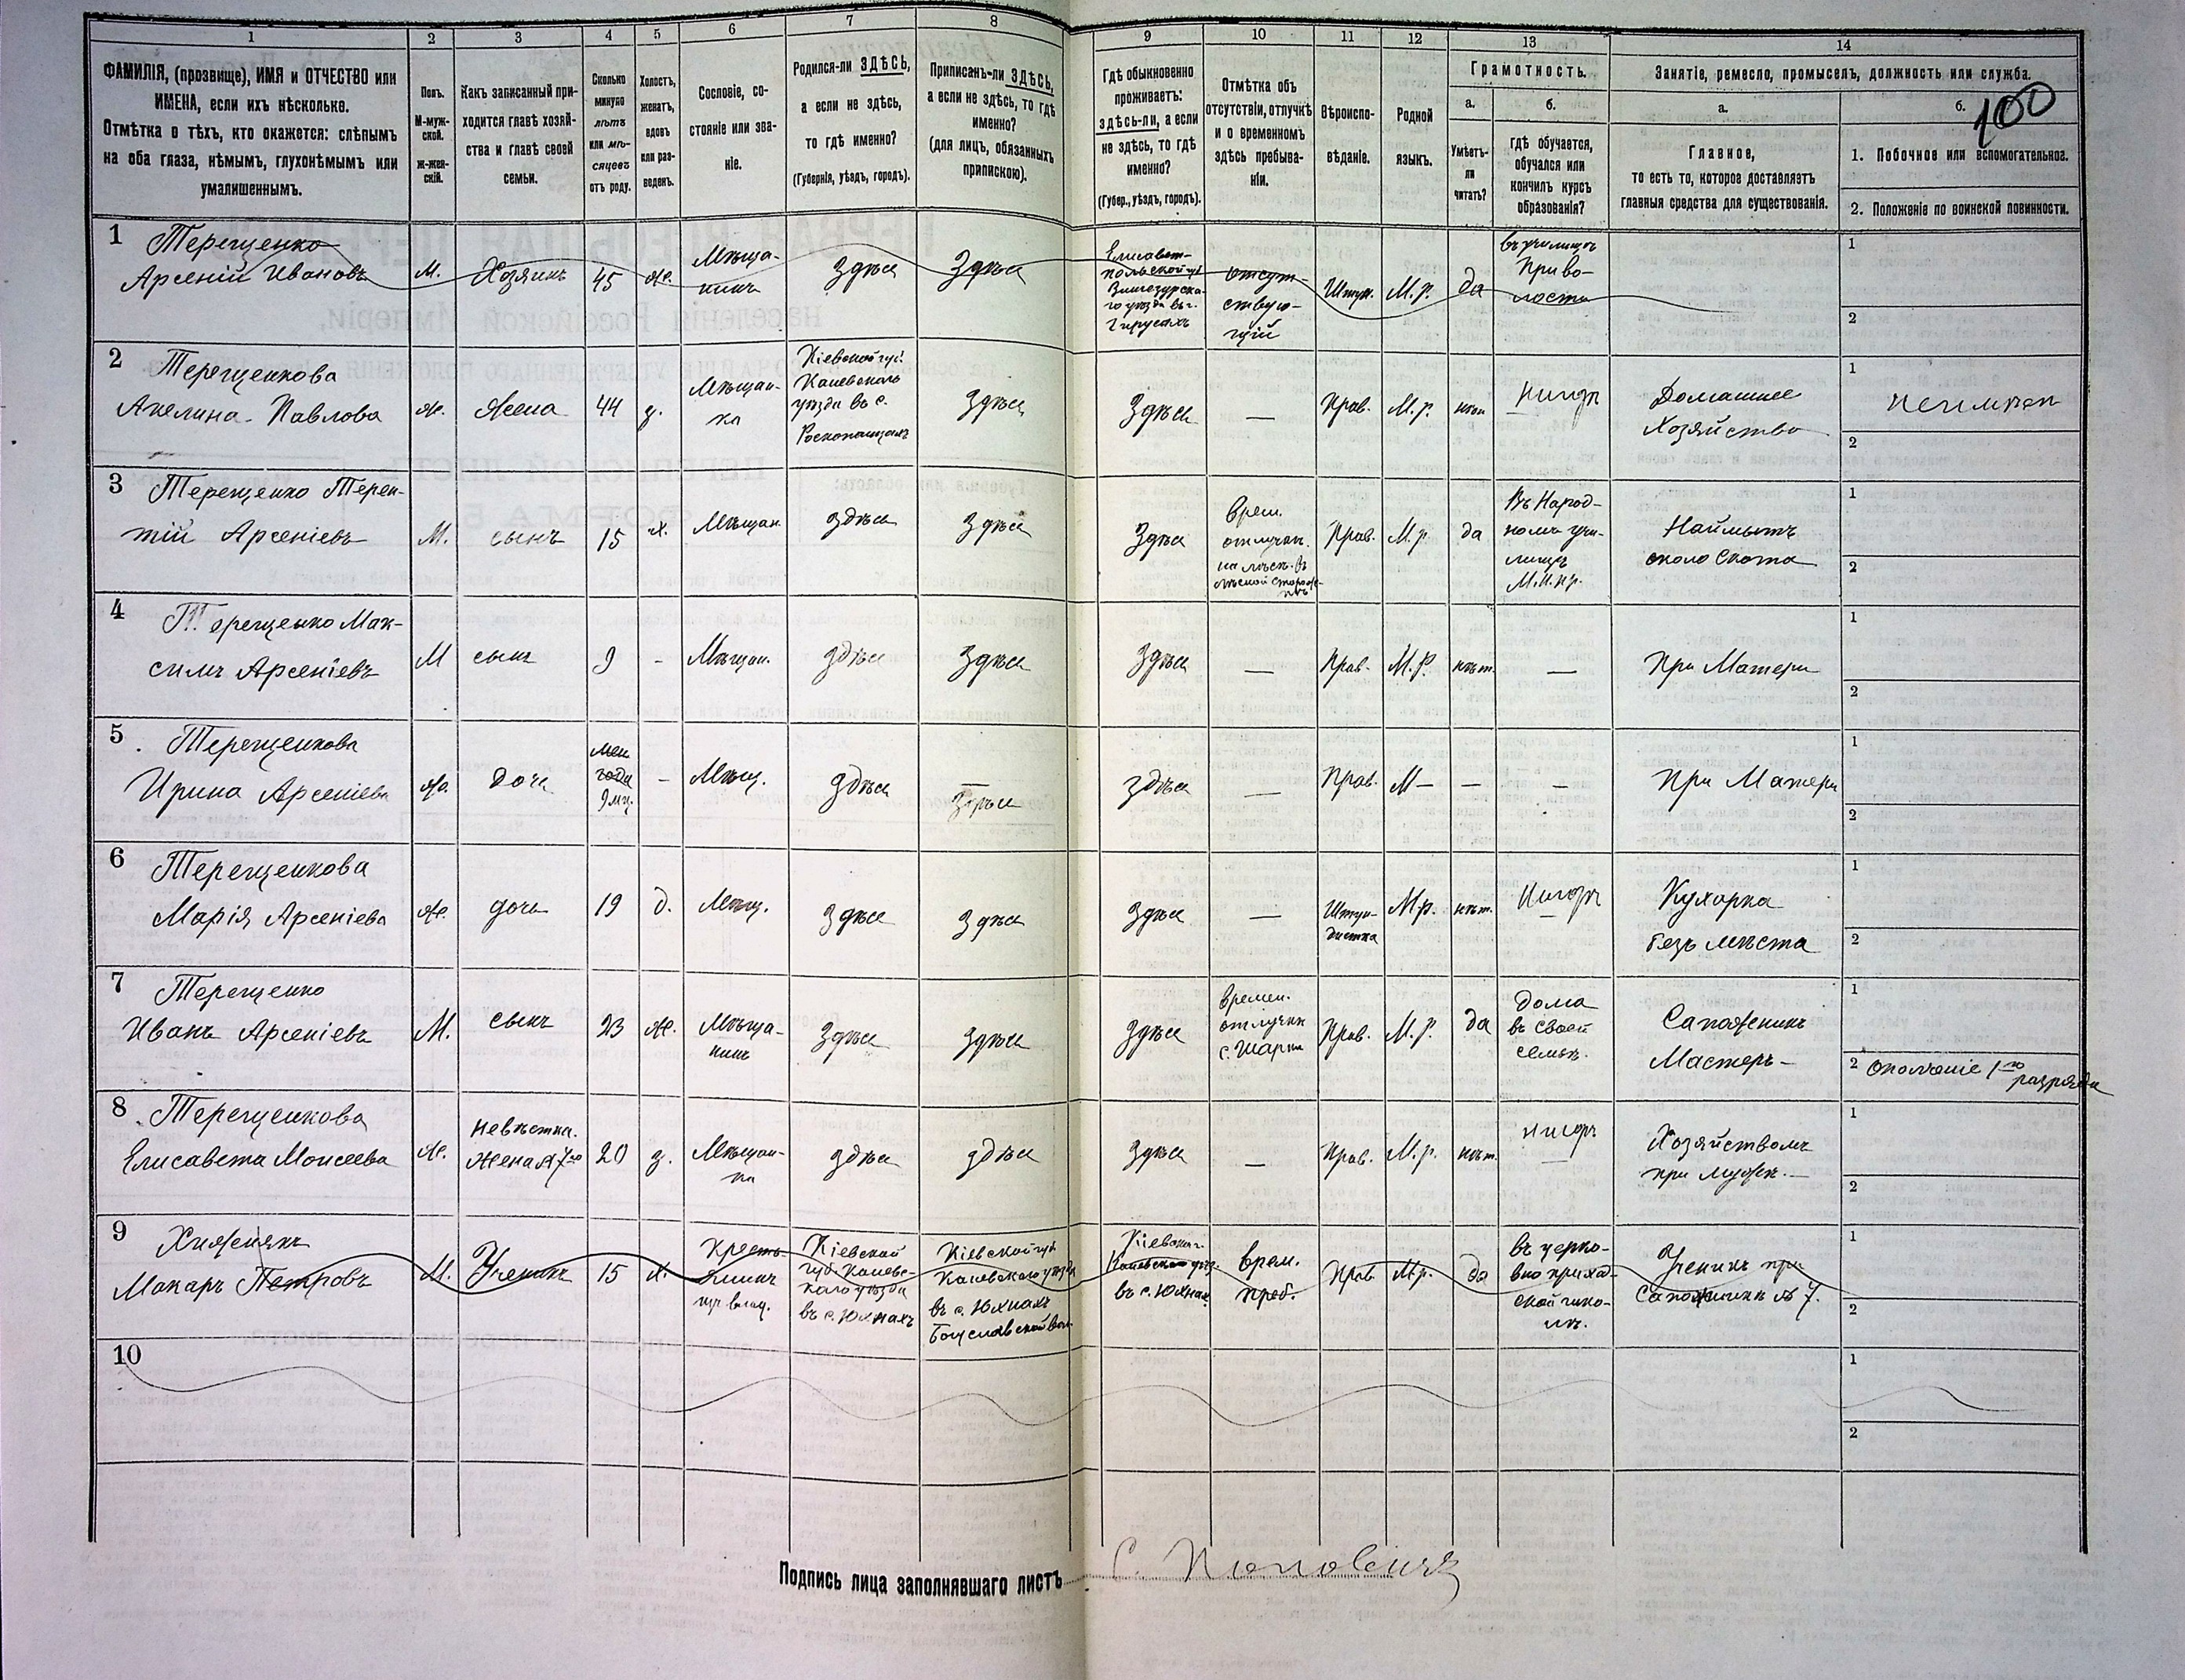 1
2
3
4
5
6
7
8
9
10
11
12
13
14
ФАМИЛІЯ, (прозвище), ИМЯ и ОТЧЕСТВО или
ИМЕНА, если ихъ нѣсколько.
Отмѣтка о тѣхъ, кто окажется: слѣпымъ
на оба глаза, нѣмымъ, глухонѣмымъ или
умалишеннымъ.
Полъ.
М-муж-
ской.
Ж-жен-
скій.
Какъ записанный при-
ходится главѣ хозяй-
ства и главѣ своей
семьи.
Сколько
минуло
лѣтъ
или мѣ-
сяцевъ
отъ роду.
Холостъ,
женатъ,
вдовъ
или раз-
веденъ.
Сословіе, со-
стояніе или зва-
ніе.
Родился-ли ЗДѢСЬ,
а если не здѣсь,
то гдѣ именно?
(Губернія, уѣздъ, городъ).
Приписанъ-ли ЗДѢСЬ,
а если не здѣсь, то гдѣ
именно?
(для лицъ, обязанныхъ
припискою).
Гдѣ обыкновенно
проживаетъ:
здѣсь-ли, а если
не здѣсь, то гдѣ
именно?
(Губер., уѣздъ, городъ).
Отмѣтка объ
отсутствіи, отлучкѣ
и о временномъ
здѣсь пребыва-
ніи.
Вѣроиспо-
вѣданіе.
Родной
языкъ.
Грамотность.
а.
б.
Умѣетъ-
ли
читать?
гдѣ обучается,
обучался или
кончилъ курсъ
образованія?
Занятіе, ремесло, промыселъ, должность или служба.
а.
б.
100
Главное,
то есть то, которое доставляетъ
главныя средства для существованія.
1. Побочное или вспомогательное.
2. Положеніе по воинской повинности.
1 Терещенко
Арсеній Ивановъ
М.
Хозяинъ
45
ж.
Мѣща-
нинъ
Здѣсь
Здѣсь
Елисавет-
польской гу.
го уѣзда въ г.
отсут-
ствую-
щій
Штун.
М.р.
да
въ училищѣ
1
2
2 Терещенкова
Акелина Павлова
ж.
Жена
44
з.
Мѣщан-
ка
Кіевской губ.
Каневскаго
уѣзда въ с.
Здѣсь
Здѣсь
—
Прав.
М.р.
нѣт
нигдѣ
Домашнее
Хозяйство
1
2
3 Терещенко Терен-
тій Арсеніевъ
М.
сынъ
15
х.
Мѣщан.
здѣсь
здѣсь
Здѣсь
Врем.
отлучен.
Прав.
М.р.
да
Въ Народ-
номъ учи-
лищѣ
М.Н.пр.
Наймытъ
около скота
1
2
4 Терещенко Мак-
симъ Арсеніевъ
М
сынъ
9
-
Мѣщан.
здѣсь
здѣсь
здѣсь
—
Прав.
М.р.
нѣт.
—
При Матери
1
2
5 Терещенкова
Ирина Арсеніева
ж.
дочь
мен.
года
9 мц.
-
Мѣщ.
здѣсь
здѣсь
здѣсь
—
Прав.
М —
—
—
При Матери
1
2
6 Терещенкова
Марія Арсеніева
ж.
дочь
19
д.
Мѣщ.
здѣсь
здѣсь
здѣсь
—
Штун-
дистка
М.р.
нѣт.
Нигдѣ
Кухарка
безъ мѣста
1
2
7 Терещенко
Иванъ Арсеніевъ
М.
сынъ
23
ж.
Мѣща-
нинъ
здѣсь
здѣсь
здѣсь
Времен.
отлученъ
Прав.
М.р.
да
дома
въ своей
семьѣ.
Сапожникъ
Мастеръ —
1
2 ополченіе 1го
разряда
8 Терещенкова
Елисавета Моисеева
ж.
Невѣстка.
Жена №7го
20
з.
Мѣщан-
ка
здѣсь
здѣсь
здѣсь
—
Прав.
М.р.
нѣт.
нигдѣ
Хозяйствомъ
при мужѣ. —
1
2
9 Хижнякъ
Макаръ Петровъ
М.
Ученикъ
15
х.
Кресть-
янинъ
Кіевской
губ. Канев-
скаго уѣзда
въ с. Юхнахъ
Кіевской губ.
Каневскаго уѣзда
въ с. Юхнахъ
Богуславской вол.
Кіевской г.
Каневскаго уѣзд.
въ с. Юхнах
Врем.
преб.
Прав
М.р.
да
въ церко-
вно приход-
ской шко-
лѣ.
Ученикъ при
Сапожникѣ №7.
1
2
10
1
2
Подпись лица заполнявшаго листъ С. Поповичъ